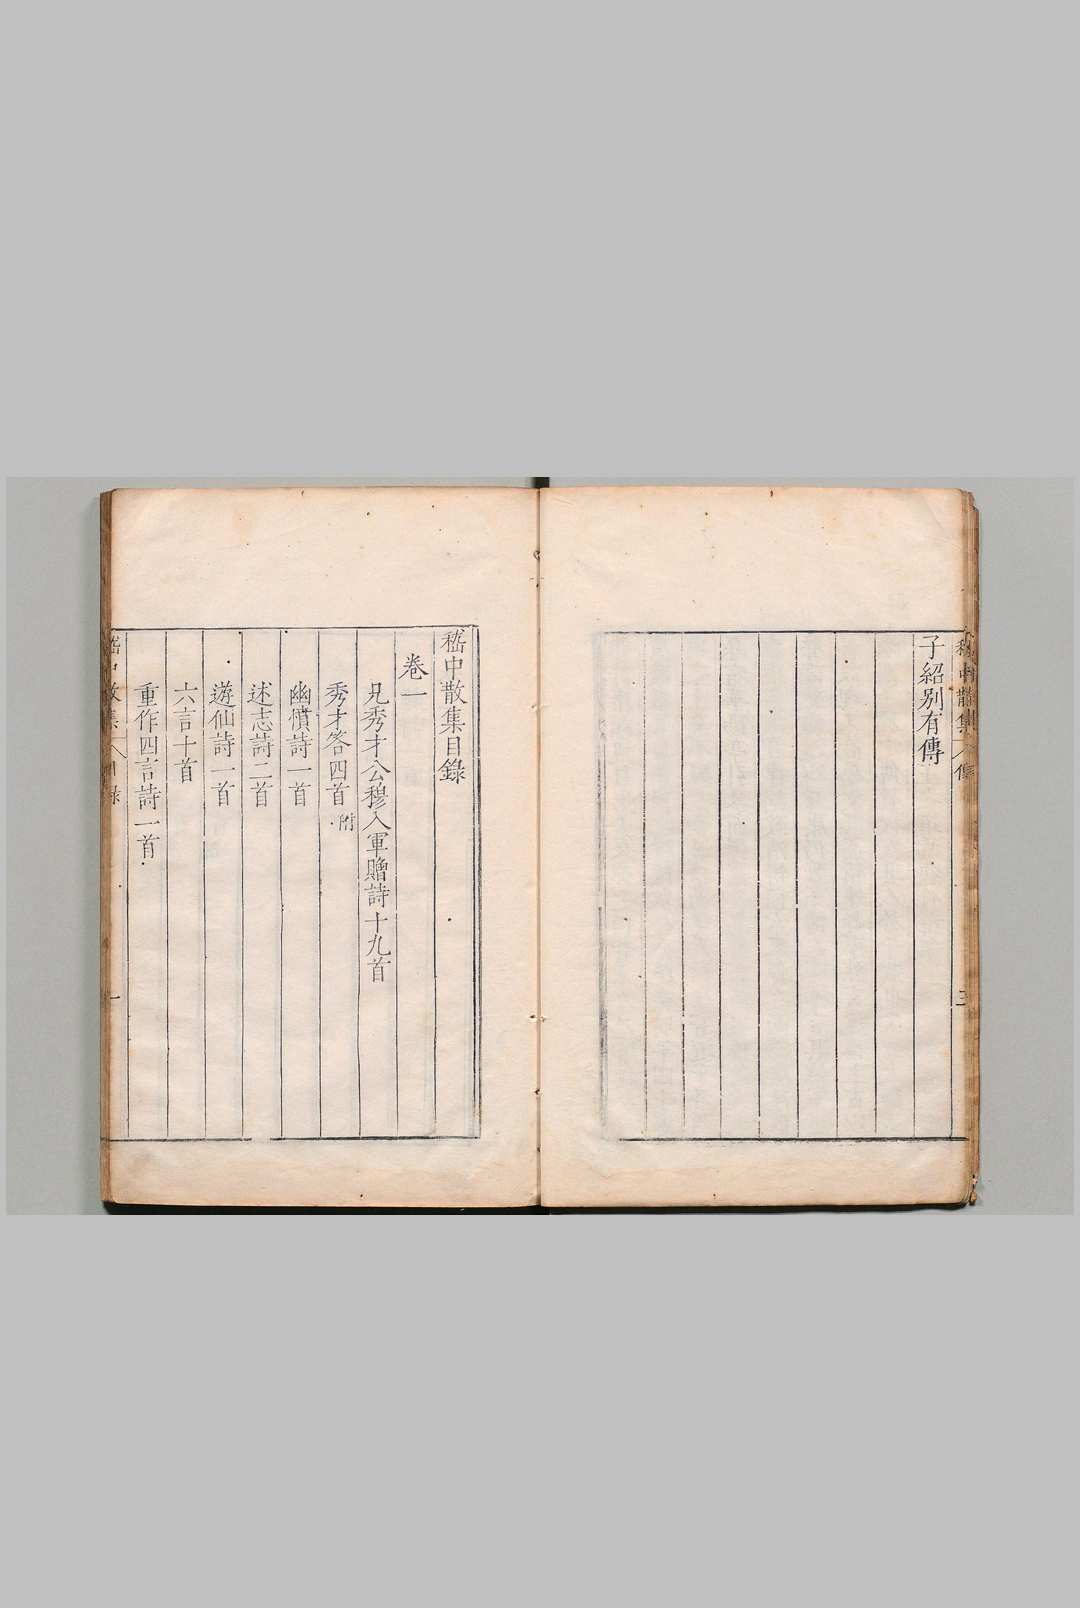 嵇中散集 傳
三
子紹別有傳
嵇中散集目錄
卷一
兄秀才公穆入軍贈詩十九首
秀才答四首附
幽憤詩一首
述志詩二首
遊仙詩一首
六言十首
重作四言詩一首
嵇中散集 目錄
一